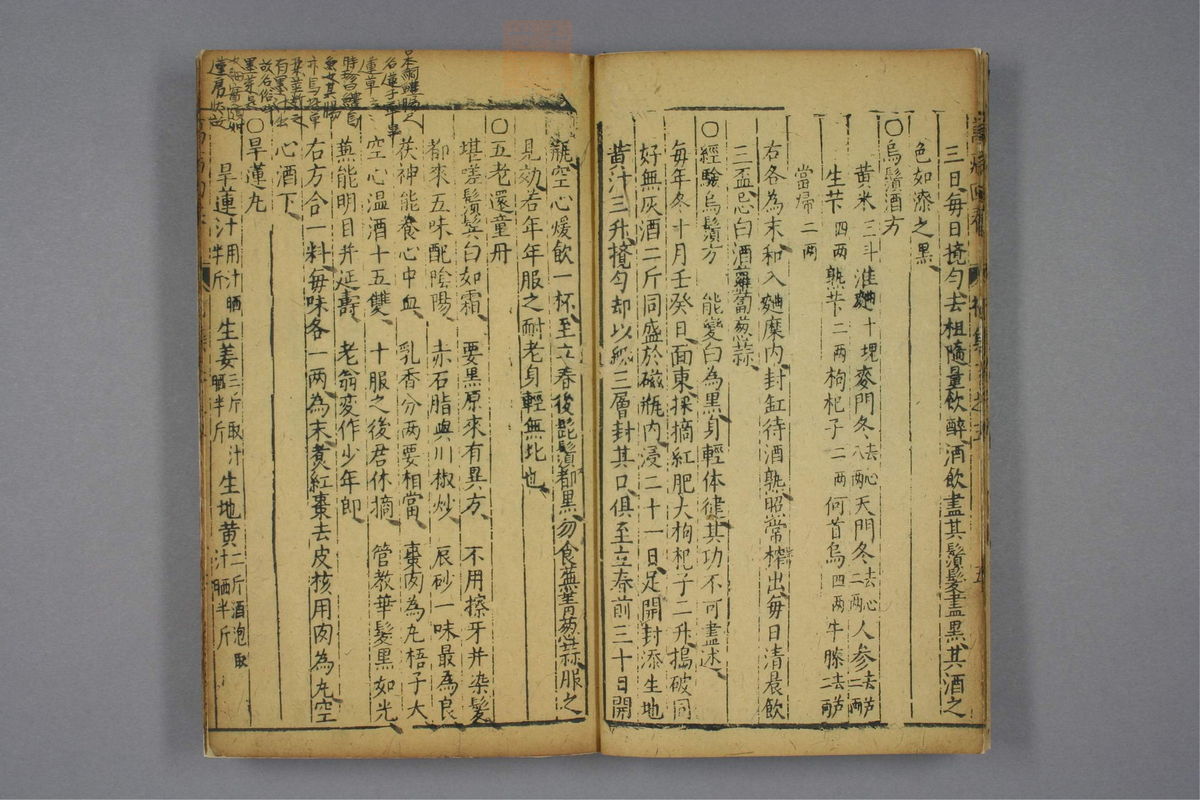 三日每日攪勻去柤隨量飲醉酒飲盡其鬚髮盡黑其酒之
色如漆之黑
○烏鬚酒方
黃米三斗淮麯十塊麥門冬去心八兩天門冬去心二兩人參去芦二兩
生苄四兩熟苄二兩枸杞子二兩何首烏四兩牛膝去芦二兩
當歸二兩
右各為末和入麯糜內封缸待酒熟照常榨出每日清晨飲
三盃忌白酒蘿蔔葱蒜
○經驗烏鬚方　能變白為黑身輕体健其功不可盡述
每年冬十月壬癸日面東採摘紅肥大枸杞子二升搗破同
好無灰酒二斤同盛於磁瓶內浸二十一日足開封添生地
黃汁三升攪勻却以紙三層封其口俱至立春前三十日開
瓶空心煖飲一杯至立春後髭鬚都黑勿食蕪荑葱蒜服之
見効若年年服之耐老身輕無比也
○五老還童丹
堪嗟鬚髮白如霜　要黑原來有異方　不用擦牙并染髮
都來五味配陰陽　赤石脂與川椒炒　辰砂一味最為良
茯神能養心中血　乳香分兩要相當　棗肉為丸梧子大
空心温酒十五雙　十服之後君休摘　管教華髮黑如光
兼能明目并延壽　老翁変作少年郎
右方合一料每味各一两為末煮紅棗去皮核用肉為丸空
心酒下
○旱蓮丸
旱蓮汁用汁晒半斤生姜三斤取汁晒半斤生地黄二斤酒泡取汁晒半斤